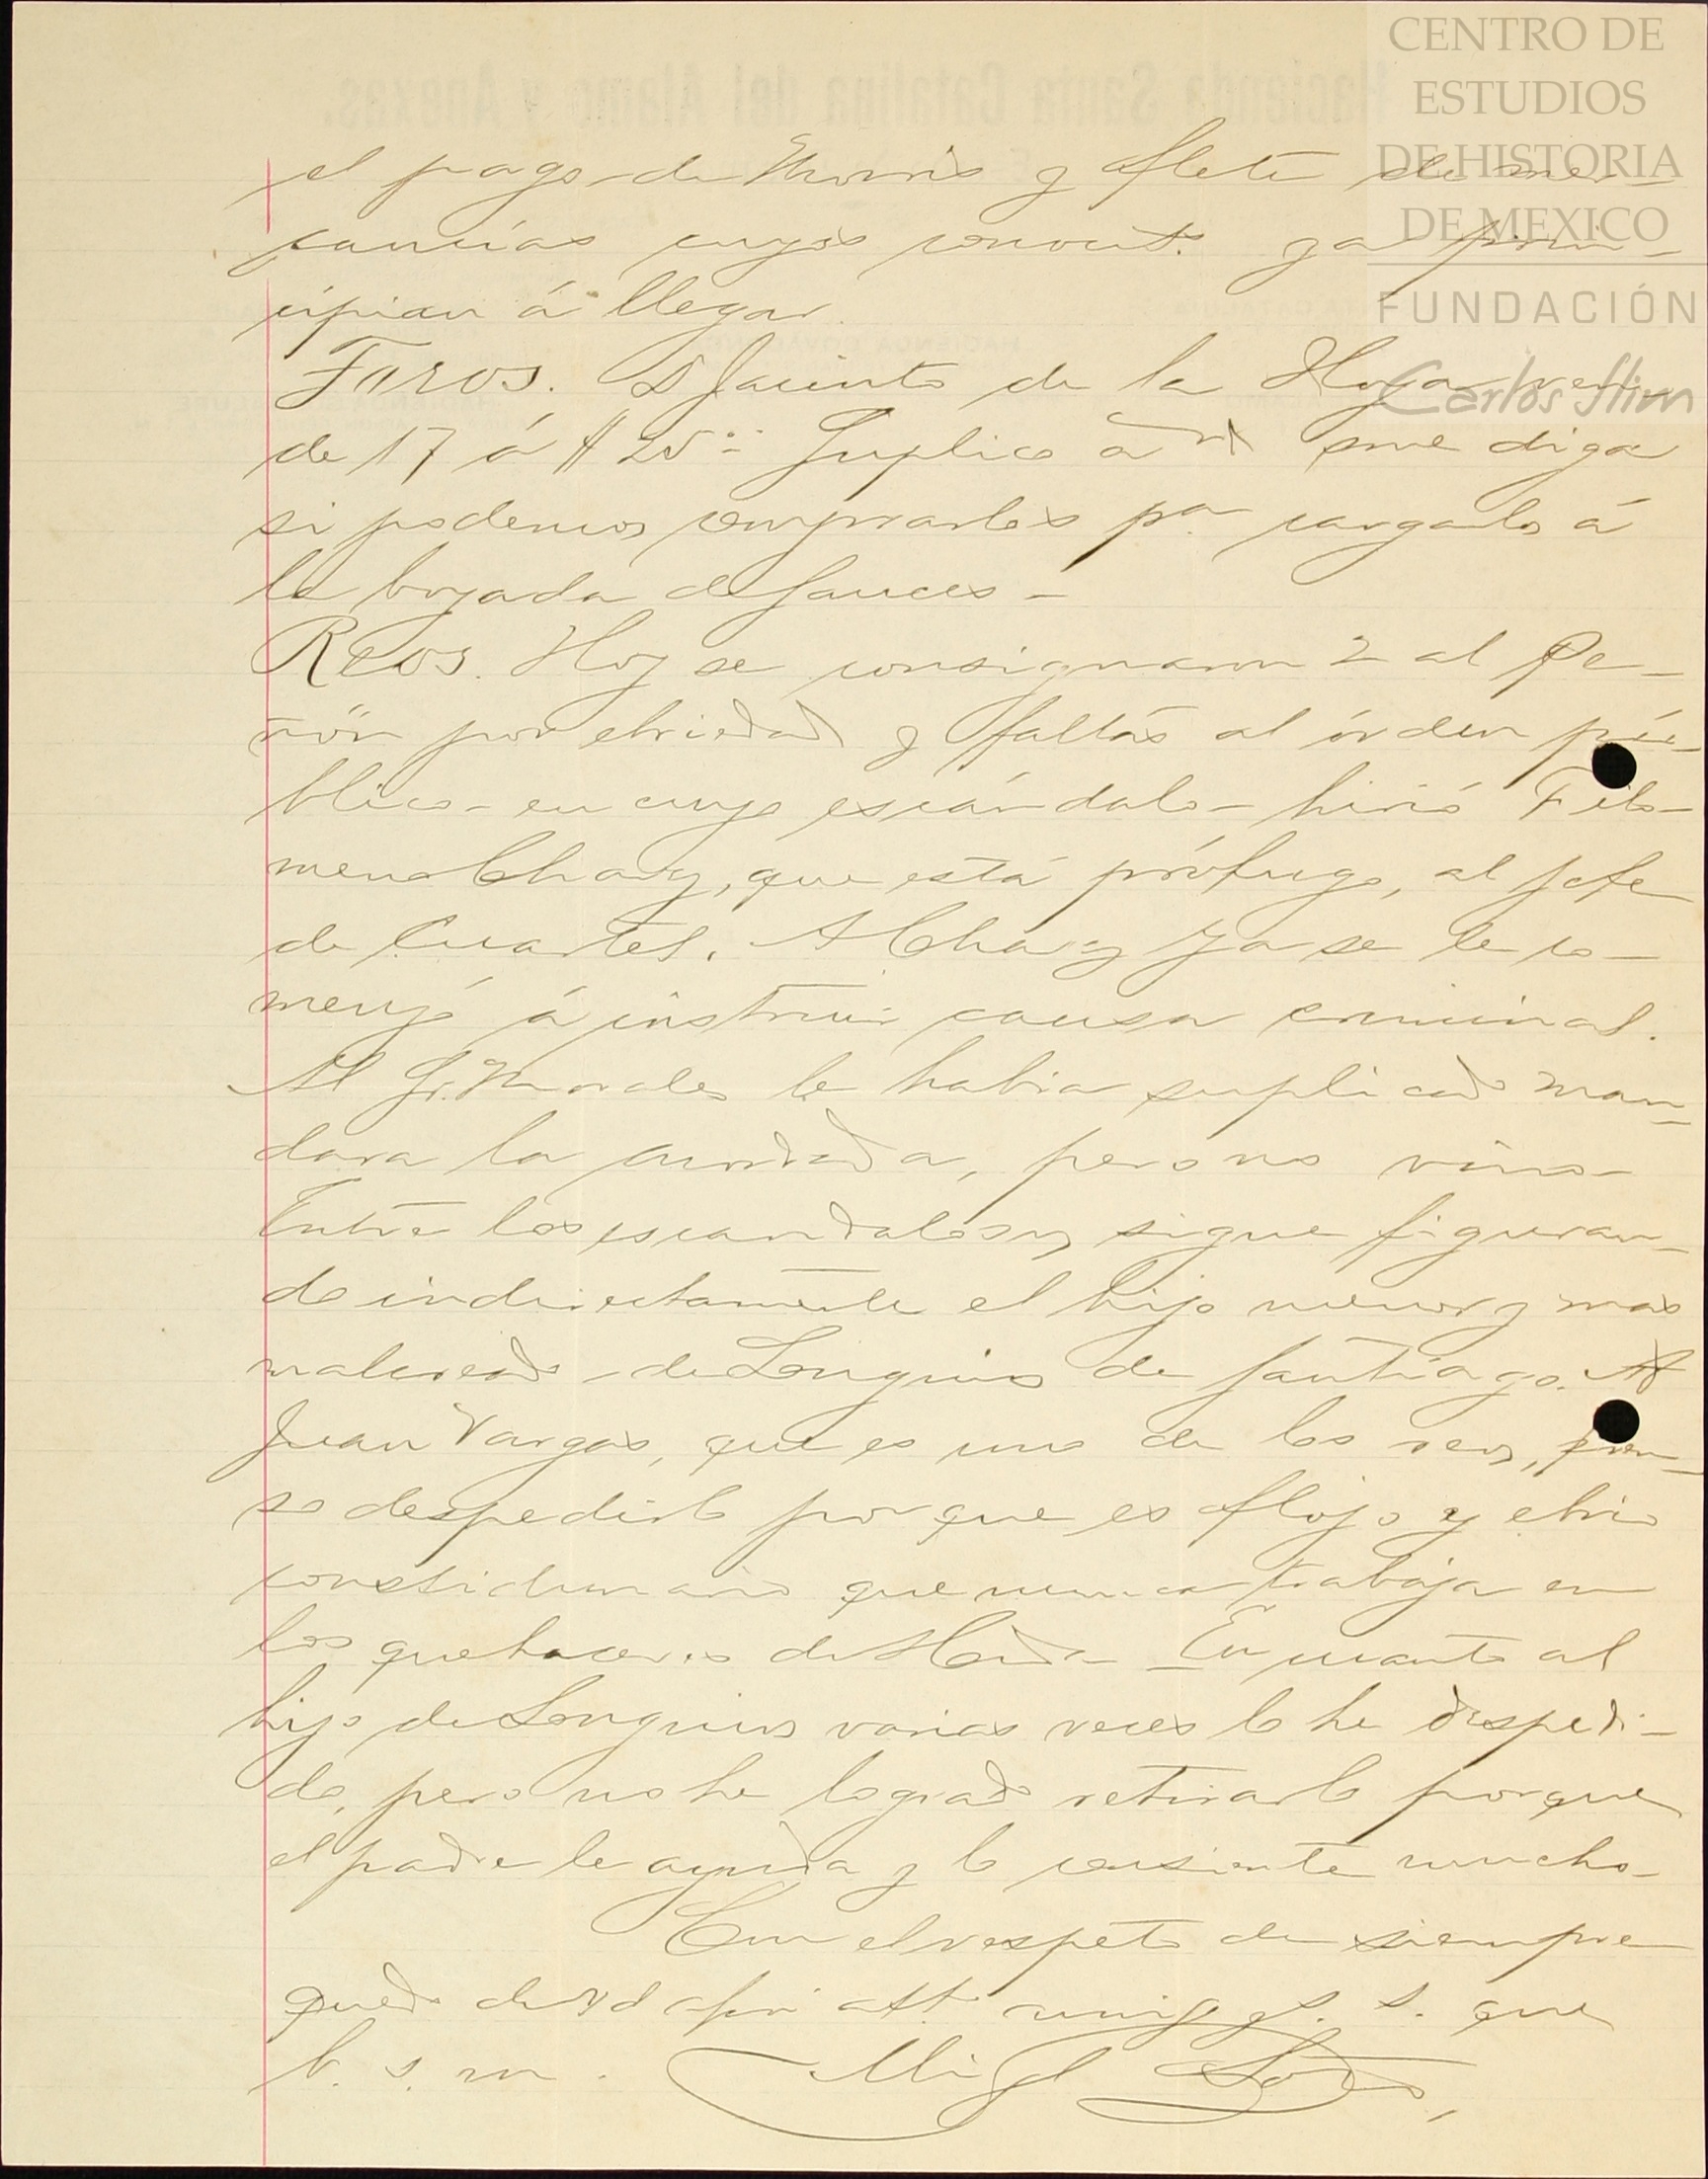 CENTRO DE
ESTUDIOS
DE HISTORIA
DE MEXICO
FUNDACIÓN
Carlos Slim
Hacienda Santa Catalina del Alamo y Anexas.
el pago de Morris y flete de mer-
cancías cuyos conoct.s ya prin-
cipian á llegar.
Toros. D Jacinto de la Hoya
de 17 á $25.00 Suplico á Ud me diga
si podemos comprarlos pa. cargarlos á
la boyada de Sauces-
Reos. Hoy se consignaron 2 al Pe-
ñón por ebriedad y faltas al órden pú-
blico- en cuyo escándalo- hirió Filo-
meno Chavz, que está prófugo, al Jefe
de Cuartel. A Chavz ya se le co-
menzó á instruir causa criminal.
Al Sr. Morales le habia suplicado man-
dara la acordada, pero no vino-
Entre los escandalosos sigue figuran-
do indirectamente el hijo menor y mas
malcriado de Longinos de Santiago. A
Juan Vargas, que es uno de los reos, pien-
so despedirlo porque es flojo y ebrio
consuetudinario que nunca trabaja en
los quehaceres de Hcda- En cuanto al
hijo de Longinos varias veces lo he despedi-
do, pero no he logrado retirarlo porque
el padre le ayuda y lo consiente mucho-
Con el respeto de siempre
quedo de Ud afmo att. amigo y s. s. que
b. s. m. Migl